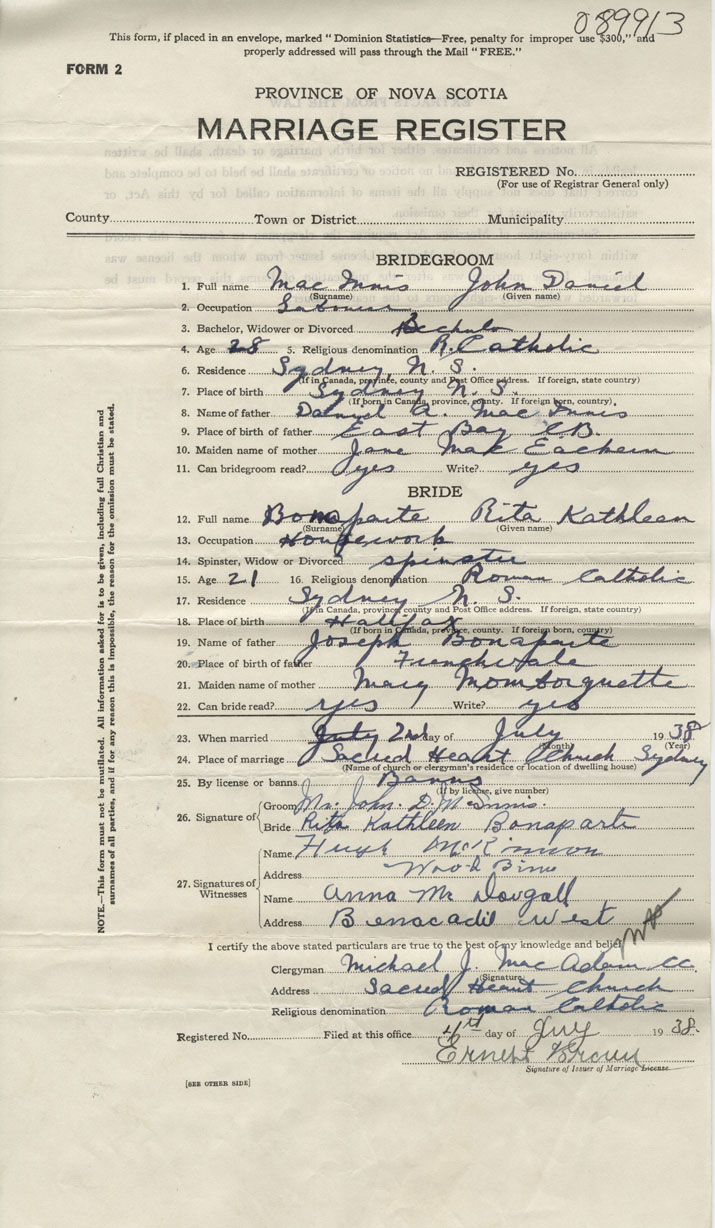 089913
This form, if placed in an envelope, marked "Dominion Statistics—Free, penalty for improper use $300," and
properly addressed will pass through the Mail "FREE."
FORM 2
PROVINCE OF NOVA SCOTIA
MARRIAGE REGISTER
REGISTERED No.
(For use of Registrar General only)
County Town or District Municipality
BRIDEGROOM
1. Full name Mac Innis John Daniel
(Surname) (Given name)
2. Occupation Labourer
3. Bachelor, Widower or Divorced Bachelor
4. Age 28 5. Religious denomination R. Catholic
6. Residence Sydney N. S.
(If in Canada, province, county and Post Office address. If foreign, state country)
7. Place of birth Sydney N. S.
(If born in Canada, province, county. If foreign born, country)
8. Name of father Daniel A. Mac Innis
9. Place of birth of father East Bay C.B.
10. Maiden name of mother Jane Mac Eachern
11. Can bridegroom read? yes Write? yes
BRIDE
12. Full name Bonaparte Rita Kathleen
(Surname) (Given name)
13. Occupation Housework
14. Spinster, Widow or Divorced spinster
15. Age 21 16. Religious denomination Roman Catholic
17. Residence Sydney N. S.
(If in Canada, province, county and Post Office address. If foreign, state country)
18. Place of birth Halifax
(If born in Canada, province, county. If foreign born, country)
19. Name of father Joseph Bonaparte
20. Place of birth of father Frenchvale
21. Maiden name of mother Mary Momborquette
22. Can bride read? yes Write? yes
23. When married July 2nd day of July 1938
(Month) (Year)
24. Place of marriage Sacred Heart Church Sydney
(Name of church or clergyman's residence or location of dwelling house)
25. By license or banns Banns
(If by license, give number)
26. Signature of
Groom Mr. John. D. McInnis.
Bride Rita Kathleen Bonaparte
27. Signatures of Witnesses
Name Hugh McKinnon
Address Wood Bine
Name Anna Mc Dougall
Address Benacadie West
I certify the above stated particulars are true to the best of my knowledge and belief
Clergyman Michael J. Mac Adam CC.
(Signature)
Address Sacred Heart Church
Religious denomination Roman Catholic
Registered No. Filed at this office 4th day of July 1938.
Ernest Brown
Signature of Issuer of Marriage License
[SEE OTHER SIDE]
NOTE.—This form must not be mutilated. All information asked for is to be given, including full Christian and
surnames of all parties, and if for any reason this is impossible, the reason for the omission must be stated.